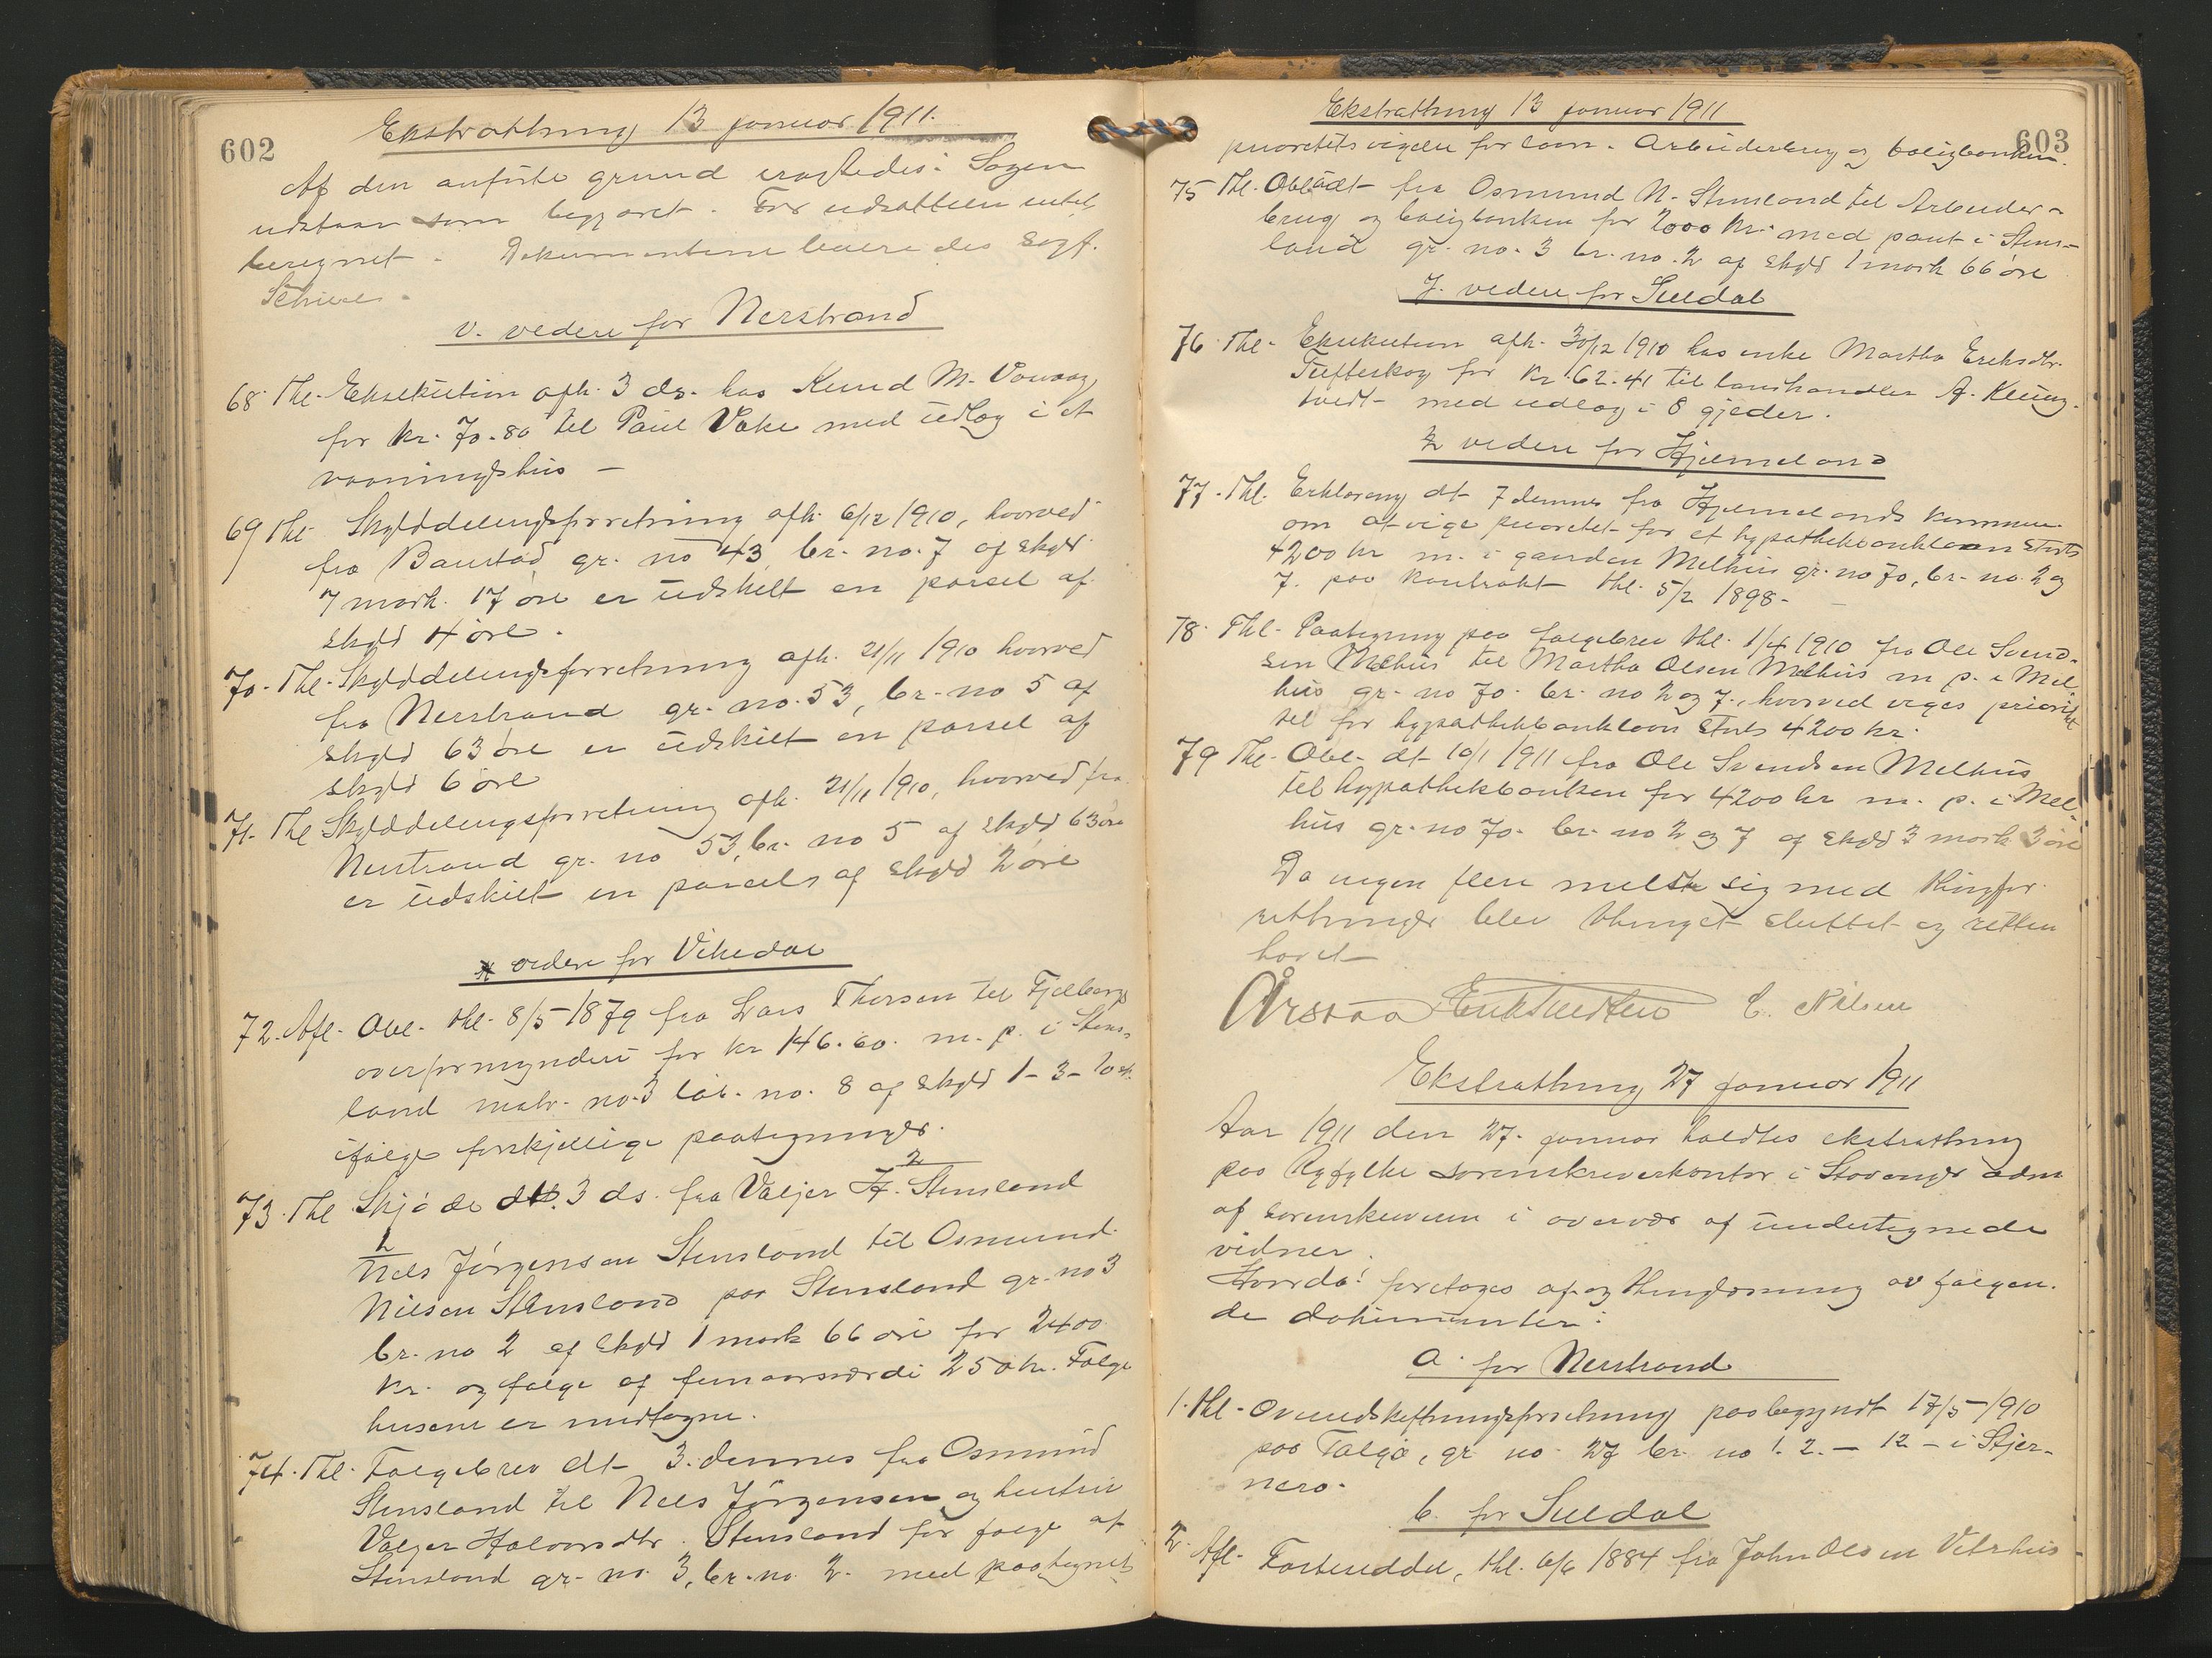 602
Ekstrathing 13 januar 1911.
Af den anførte grund eragtedes: Sagen
udstaar som begjæret. For udsættelsen intet
beregnet. Dokumenterne leveredes sagf.
Schiøtz.
v. videre for Nerstrand
68. Thl. Eksekution afh. 3 ds. hos Knud M. Vaaag
for kr. 70.80 til Paul Vake med udlæg i et
vaaningshus –
69 Thl. Skylddelingsforretning afh. 6/12 1910, hvorved
fra Baustad gr. no 43, br. no. 7 af skyld
7 mark 17 øre er udskilt en parsel af
skyld 4 øre.
70. Thl. Skylddelingsforretning afh. 21/11 1910 hvorved
fra Nerstrand gr. no. 53, br. no 5 af
skyld 63 øre er udskilt en parsel af
skyld 6 øre
71. Thl Skylddelingsforretning afh. 21/11 1910, hvorved fra
Nerstrand gr. no 53, br. no 5 af skyld 63 øre
er udskilt en parcel af skyld 2 øre
x videre for Vikedal
72. Afl. Obl. thl. 8/5 1879 fra Lars Thorsen til Fjelbergs
overformynderi for kr 146.60. m. p. i Stens-
land matr. no. 3 løb. no. 8 af skyld 1-3-10 sk.
ifølge forskjellige paategninger.
73. Thl Skjøde dt. 3 ds. fra Valjer H. Stensland
2
1
Niels Jørgensen Stensland til Osmund
Nilsen Stensland paa Stensland gr. no 3
br. no 2 af skyld 1 mark 66 øre for 2400
kr. og folge af femaarsværdi 250 kr. Folge
husene er medtagne.
74. Thl. Folgebrev dt. 3. dennes fra Osmund
Stensland til Niels Jørgensen og hustru
Valjer Halvorsdtr. Stensland for folge af
Stensland gr. no. 3, br. no. 2. med paategnet
603
Ekstrathing 13 januar 1911
prioritetsvigelse for laan. Arbeiderbrug og boligbanken.
75 Thl. Obl dt fra Osmund N. Stensland til Arbeider-
brug og boligbanken for 2000 kr. med pant i Stens-
land gr. no. 3 br. no. 2 af skyld 1 mark 66 øre
y. videre for Suldal
76. Thl. Eksekution afh. 30/12 1910 hos enke Martha Eriksdtr.
Tufteskog for kr. 62.41 til landhandler A. Kleing-
tvedt med udlæg i 8 gjeder.
z videre for Hjelmeland
77. Thl. Erklæring dt 7 dennes fra Hjelmelands kommune
om at vige prioritet for et hypothekbanklaan stort
4200 kr m. i gaarden Melhus gr. no 70, br. no. 2 og
7. paa kontrakt thl. 5/2 1898. –
78. Thl. Paategning paa folgebrev thl. 1/4 1910 fra Ole Svend-
sen Melhus til Martha Olsen Melhus m p. i Mel-
hus gr. no 70. br. no 2 og 7., hvorved viges prioritet
tet for hypothekbanklaan stort 4200 kr.
79 Thl. Obl. dt 10/1 1911 fra Ole Svendsen Melhus
til hypothekbanken for 4200 kr m. p. i Mel-
hus gr. no 70. br. no 2 og 7 af skyld 3 mark 3 øre
Da ingen flere meldte sig med thingfor-
retninger blev thinget sluttet og retten
hævet
C. Nilsen
Ekstrathing 27 januar 1911
Aar 1911 den 27. januar holdtes ekstrathing
paa Ryfylke sorenskriverkontor i Stavanger adm
af sorenskriveren i overvær af undertegnede
vidner.
Hvorda! foretoges af- og thinglæsning av følgen-
de dokumenter:
a. for Nerstrand
1. Thl. Overudskiftningsforretning paabegyndt 17/5 1910
paa Talgje, gr no. 27 br. no 1. 2. – 12 – i Stjer-
nerø.
b. for Suldal
2. Afl. Fæsteseddel, thl. 6/6 1884 fra John Olsen Vetrhus